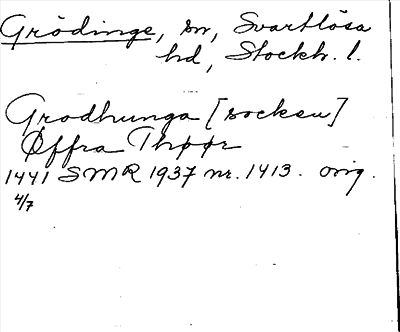 Grödinge, sn, Svartlösa
hd, Stockh. l.
Grodhunga [socken]
Øffra Thpør
1441 SMR 1937 nr. 1413. orig.
4/7